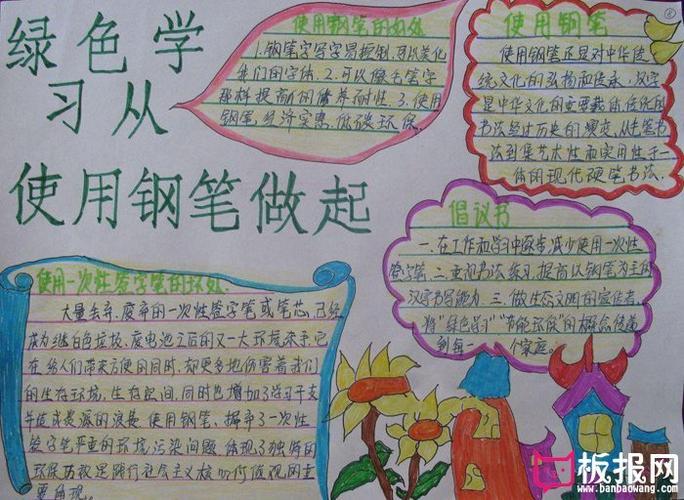 绿色学
习从
使用钢笔做起
使用钢笔的好处
1.钢笔字写字易控制,可以美化
我们的字体.2.可以像毛笔字
那样提高们的修养耐性.3.使用
钢笔,经济实惠,低碳环保.
使用钢笔
使用钢笔还是对中华传
统文化的弘扬和传承,汉字
是中华文化的重要载体,传统的
书法经过历史的演变,从毛笔书
法到集艺术性和实用性于一
体的现代硬笔书法.
倡议书
一、在工作和学习中逐步减少使用一次性
签字笔.二.重视书法练习,提高以钢笔为主的
汉字书写能力.三.做生态文明的宣传者,
将“绿色学习”“节能环保”的概念传递
到每一个家庭。
使用一次性签字笔的坏处.
大量丢弃.废弃的一次性签字笔或笔芯,已经
成为继白色垃圾.废电池之后的又一大环境杀手,它
在给人们带来方便的同时,却更多地伤害着我们
的生存环境,生存空间,同时也增加了学习开支
并造成资源的浪费.使用钢笔、摒弃了一次性
签字笔严重的环境污染问题.体现了独特的
环保历程是践行社会主义核心价值观的重
要体现.
8
板报网
www.banbaowang.com